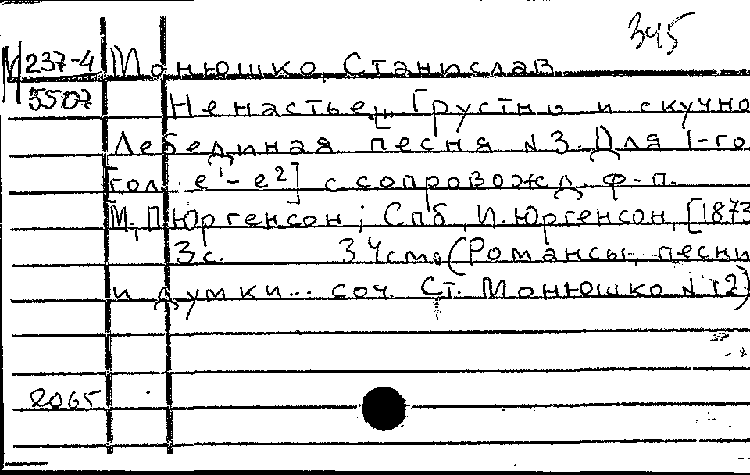 345
М 237-4 Монюшко, Станислав
5507 Ненастье. Грустно и скучно
Лебединая песня N 3. Для 1-го
гол. [e¹-e²] с сопровожд. ф-п.
М., П. Юргенсон; Спб, И. Юргенсон, [1873
3 с. 34 см. (Романсы, песни
и думки... соч. Ст. Монюшко N 12)
2065